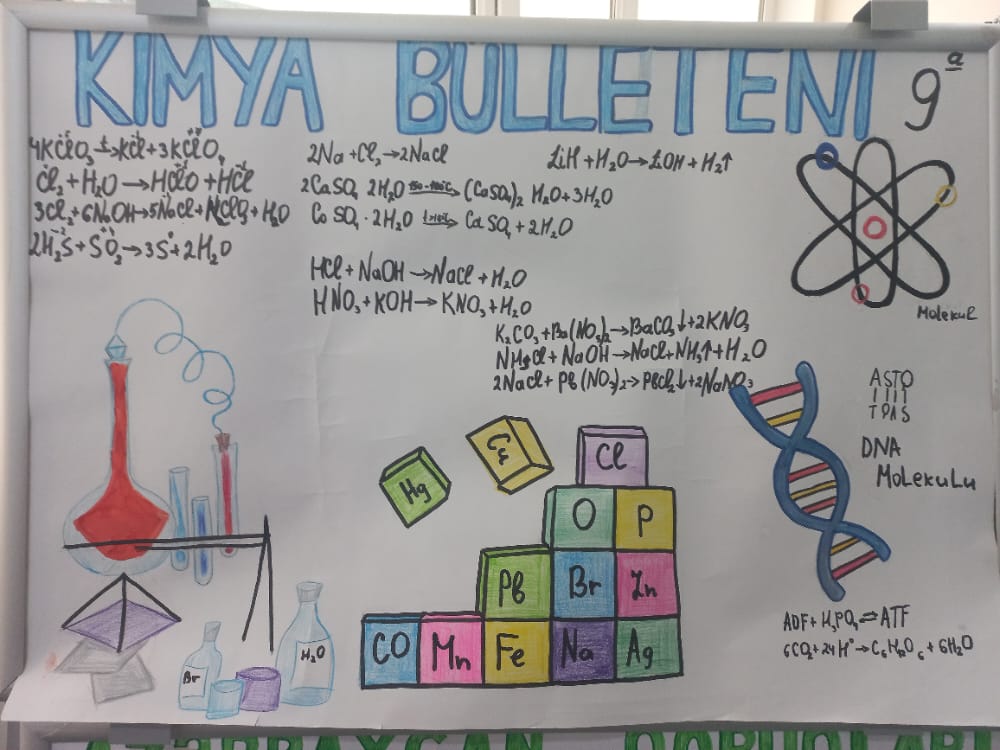 KIMYA BULLETENI 9ª
4KClO₃ →ᵗ KCl + 3KClO₄
Cl₂ + H₂O → HClO + HCl
3Cl₂ + 6NaOH → 5NaCl + NClO₃ + H₂O
2H₂S⁻² + SO₂⁺⁴ → 3S⁰ + 2H₂O
2Na + Cl₂ → 2NaCl
2CaSO₄ 2H₂O → (CaSO₄)₂ H₂O + 3H₂O
CaSO₄ · 2H₂O → CaSO₄ + 2H₂O
LiH + H₂O → LOH + H₂↑
HCl + NaOH → NaCl + H₂O
HNO₃ + KOH → KNO₃ + H₂O
K₂CO₃ + Ba(NO₃)₂ → BaCO₃↓ + 2KNO₃
NH₄Cl + NaOH → NaCl + NH₃↑ + H₂O
2NaCl + Pb(NO₃)₂ → PbCl₂↓ + 2NaNO₃
Molekul
ASTO
TPAS
DNA
Molekulu
Hg
Cl
O P
Pb Br Zn
CO Mn Fe Na Ag
Br
H₂O
ADF + H₃PO₄ ⇌ ATF
6CO₂ + 24H⁺ → C₆H₁₂O₆ + 6H₂O